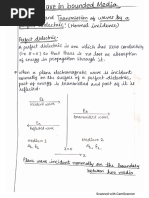 Wave in bounded Media
and Transmission of waves by a
Dielectric: (Normal incidence)
Perfect dielectric:-
A perfect dielectric is one which has zero conductivity
so that there is no loss or absorption
of energy in propagation through it.
when a plane electromagnetic wave is incident
normally on the surface of a perfect dielectric,
part of energy is transmitted and part of it
is reflected.
incident wave
Transmitted wave
reflected wave
medium 1
medium 2
Plane wave incident normally on the boundary
between two media
Scanned with CamScanner